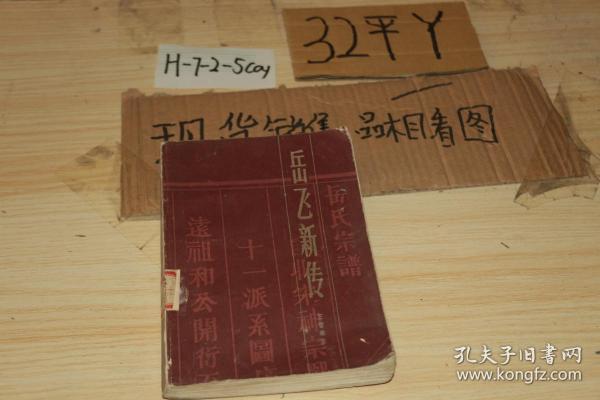 32平丫
H-7-2-5coy
现货销售 品相看图
岳飞新传
岳氏宗譜
十一派系圖
遠祖和公開衍
孔夫子旧书网
www.kongfz.com